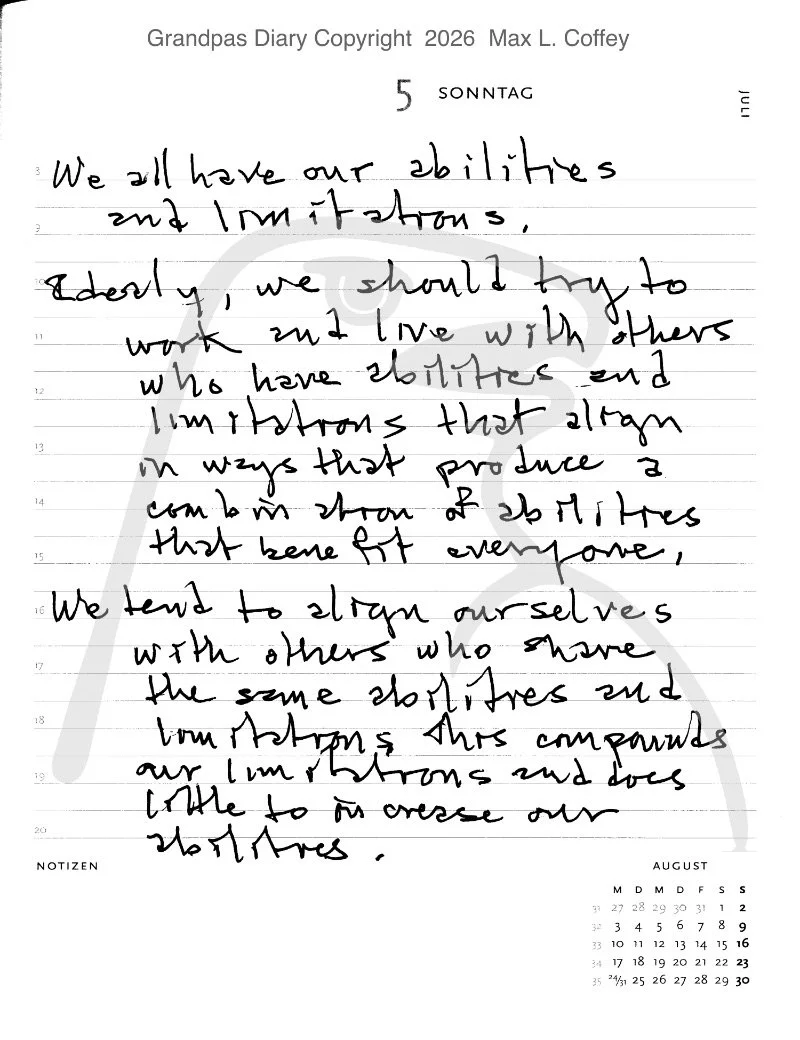 Grandpas Diary Copyright 2026 Max L. Coffey
5 SONNTAG
JULI
8 We all have our abilities
9 and limitations.
10 Ideally, we should try to
11 work and live with others
12 who have abilities and
limitations that align
13 in ways that produce a
14 combination of abilities
15 that benefit everyone,
16 We tend to align ourselves
17 with others who share
the same abilities and
18 limitations this compounds
19 our limitations and does
little to increase our
20 abilities.
NOTIZEN
AUGUST
M D M D F S S
31 27 28 29 30 31 1 2
32 3 4 5 6 7 8 9
33 10 11 12 13 14 15 16
34 17 18 19 20 21 22 23
35 24/31 25 26 27 28 29 30